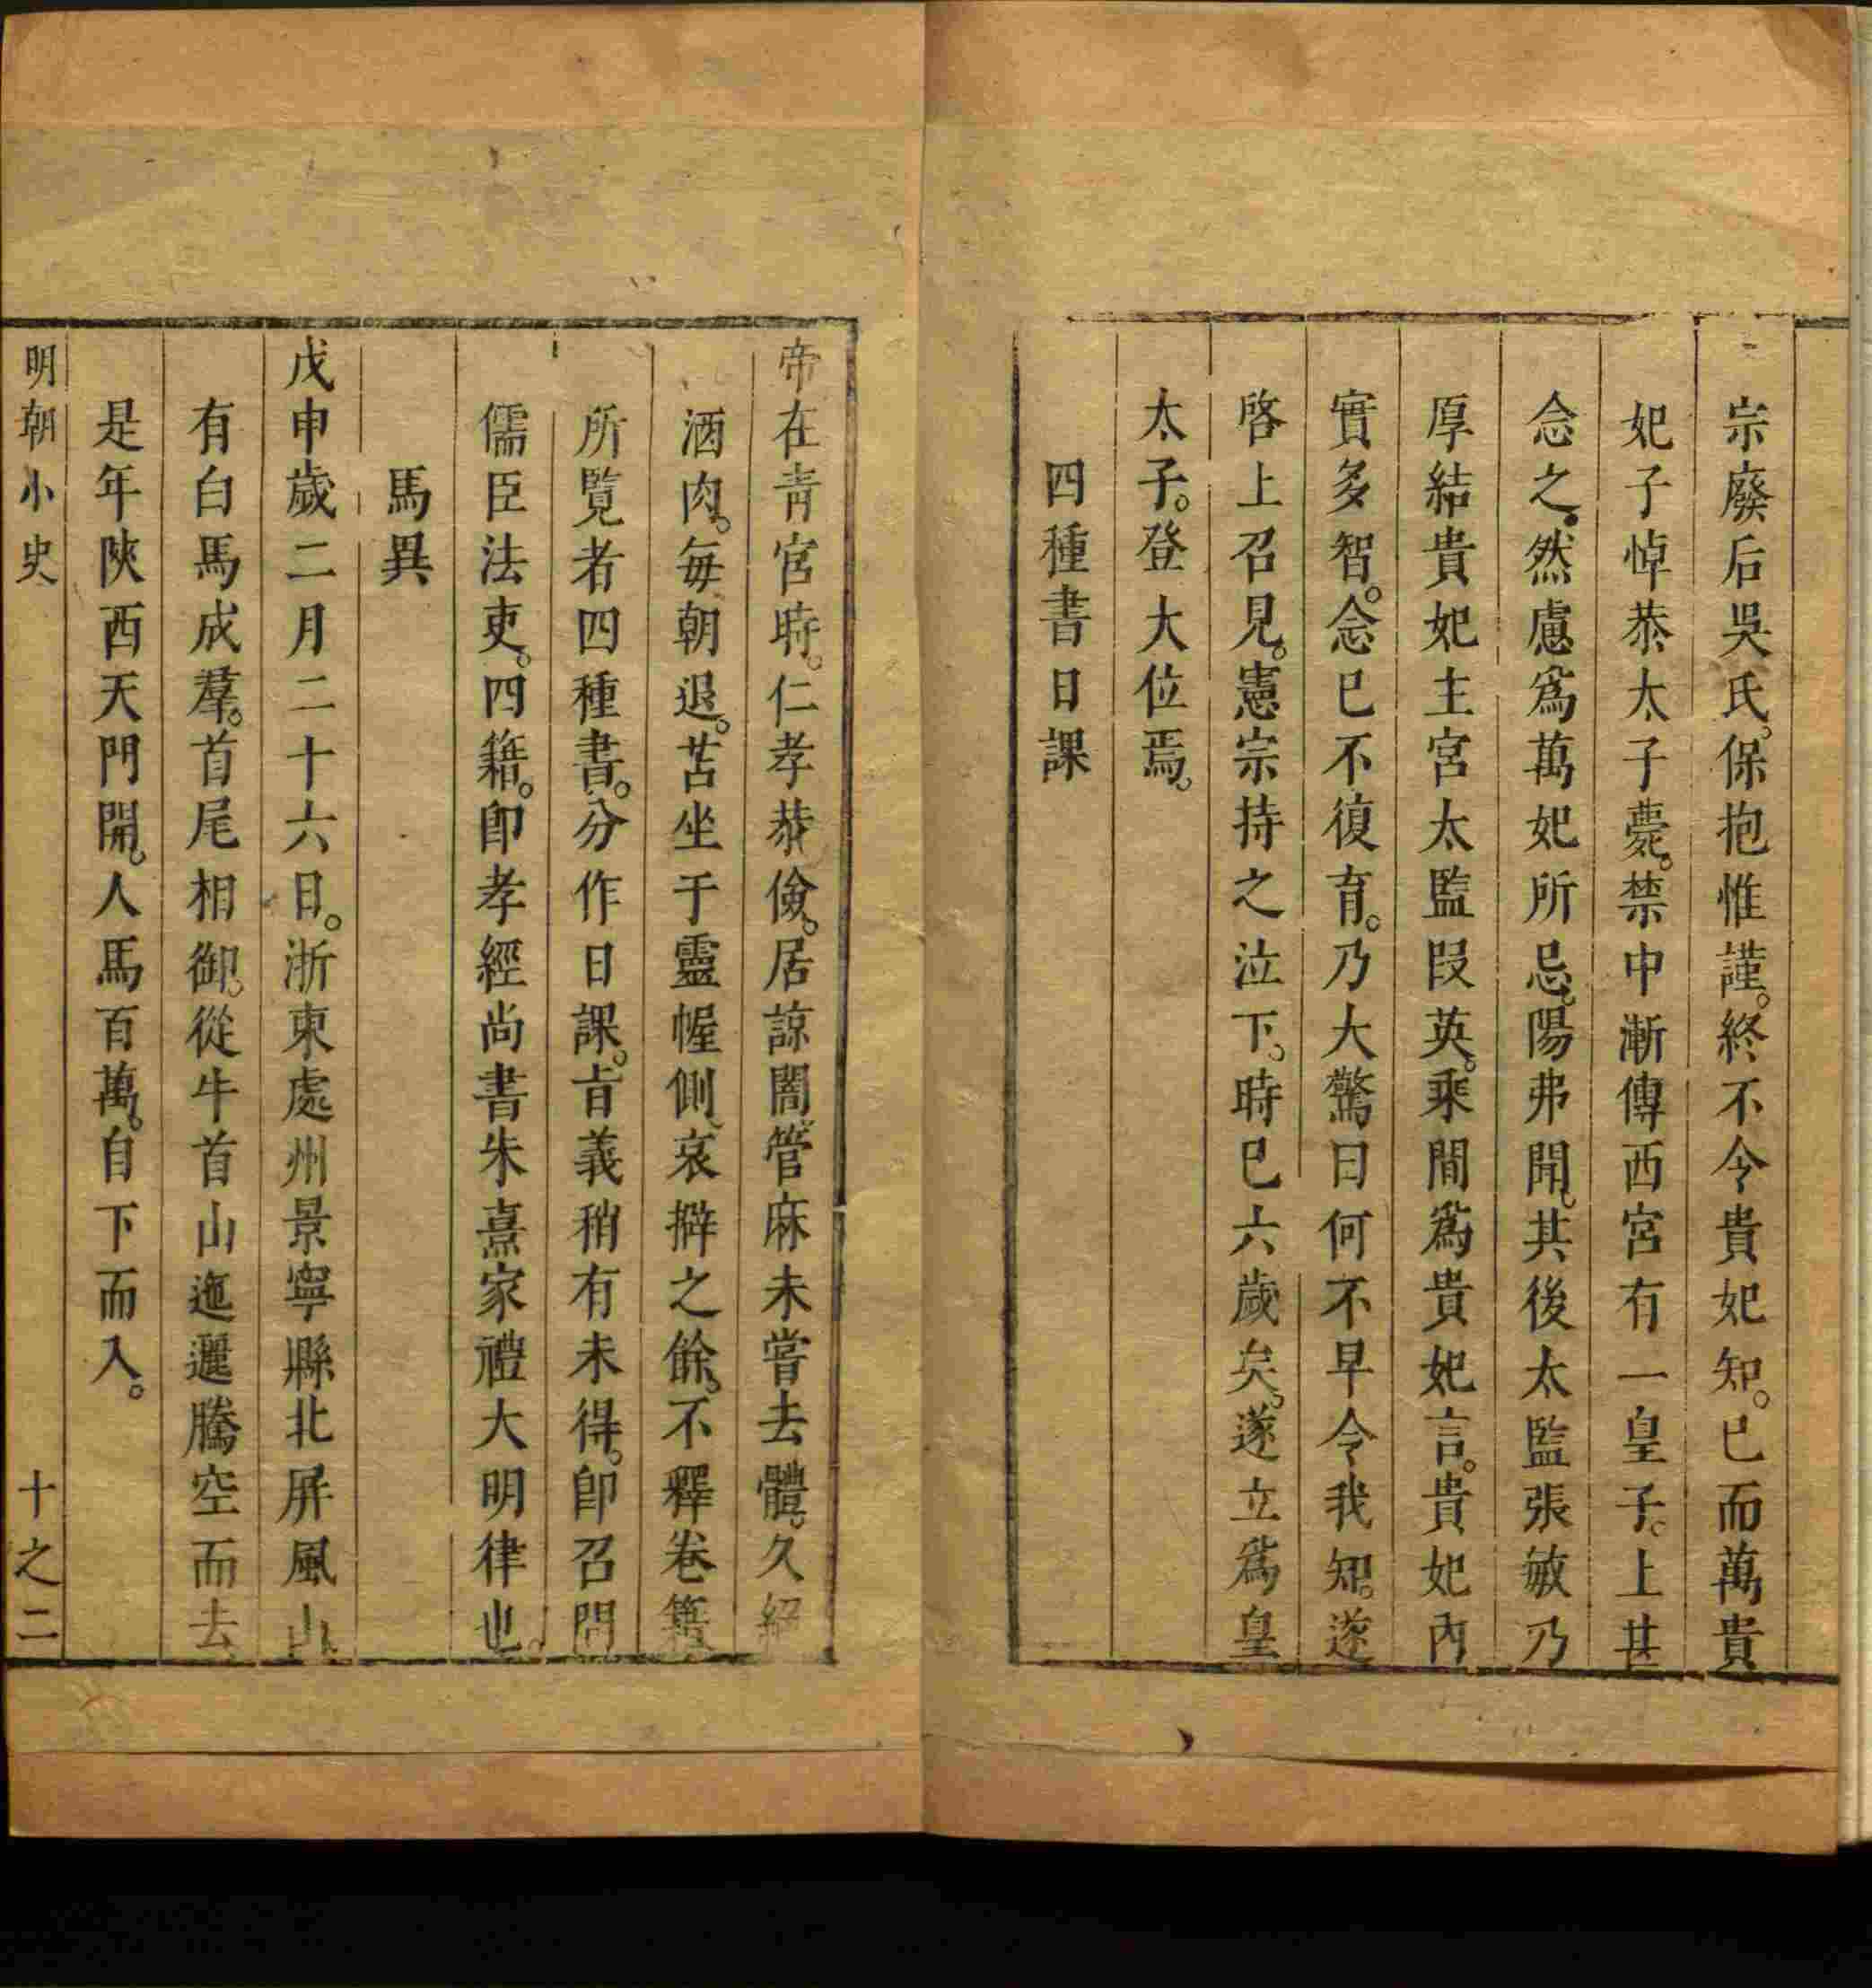 宗廢后吳氏保抱惟謹。終不令貴妃知。已而萬貴
妃子悼恭太子薨。禁中漸傳西宮有一皇子。上甚
念之。然慮爲萬妃所忌。陽弗聞。其後太監張敏乃
厚結貴妃主宮太監段英。乘間爲貴妃言。貴妃內
實多智。念已不復育。乃大驚曰何不早令我知。遂
啓上召見。憲宗持之泣下。時已六歲矣。遂立爲皇
太子。登大位焉。
四種書日課
帝在靑宮時。仁孝恭儉。居諒闇管麻未嘗去體。久絕
酒肉。每朝退。苫坐于靈幄側。哀擗之餘。不釋卷籍
所覧者四種書。分作日課。旨義稍有未得。卽召問
儒臣法吏。四籍。卽孝經尚書朱熹家禮大明律也。
馬異
戊申歲二月二十六日。浙東處州景寧縣北屏風山
有白馬成羣。首尾相御。從牛首山迤邐騰空而去
是年陝西天門開。人馬百萬。自下而入。
明朝小史
十之二